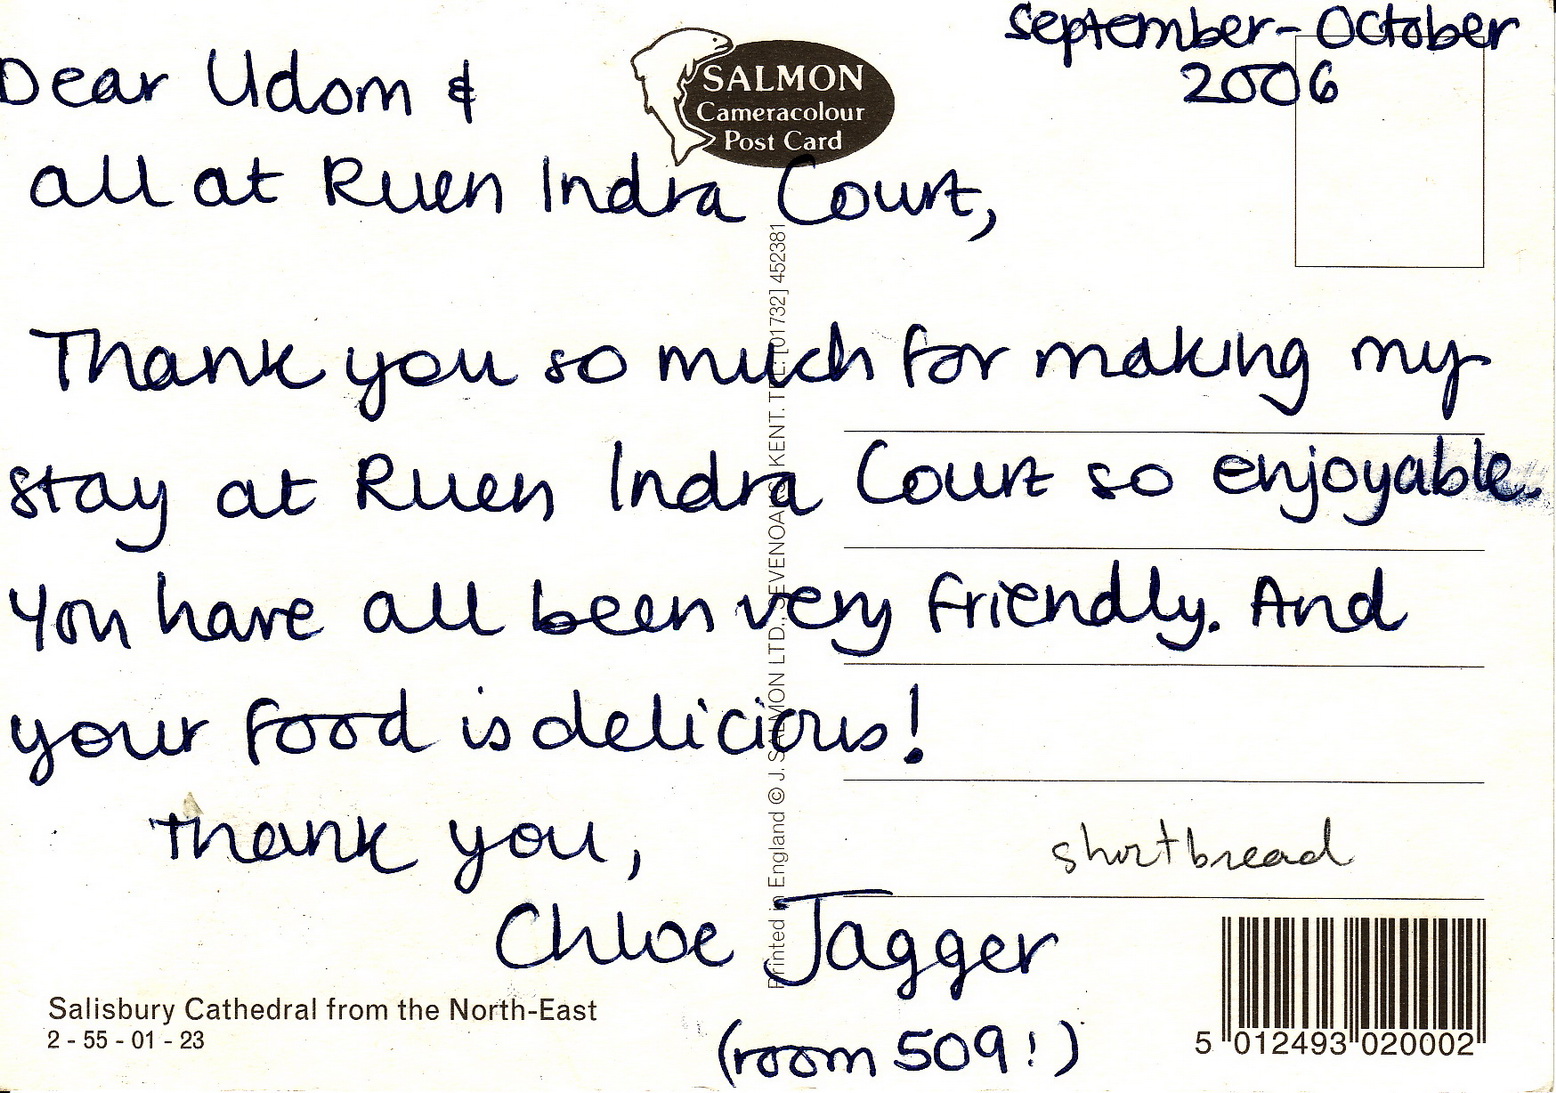 September - October
2006
SALMON
Cameracolour
Post Card
Dear Udom &
all at Ruen Indra Court,
Thank you so much for making my
stay at Ruen Indra Court so enjoyable.
You have all been very friendly. And
your food is delicious!
Thank you,
Chloe Jagger
(room 509!)
shortbread
Printed in England © J. SALMON LTD., SEVENOAKS KENT. TEL: [01732] 452381
Salisbury Cathedral from the North-East
2 - 55 - 01 - 23
5 012493 020002